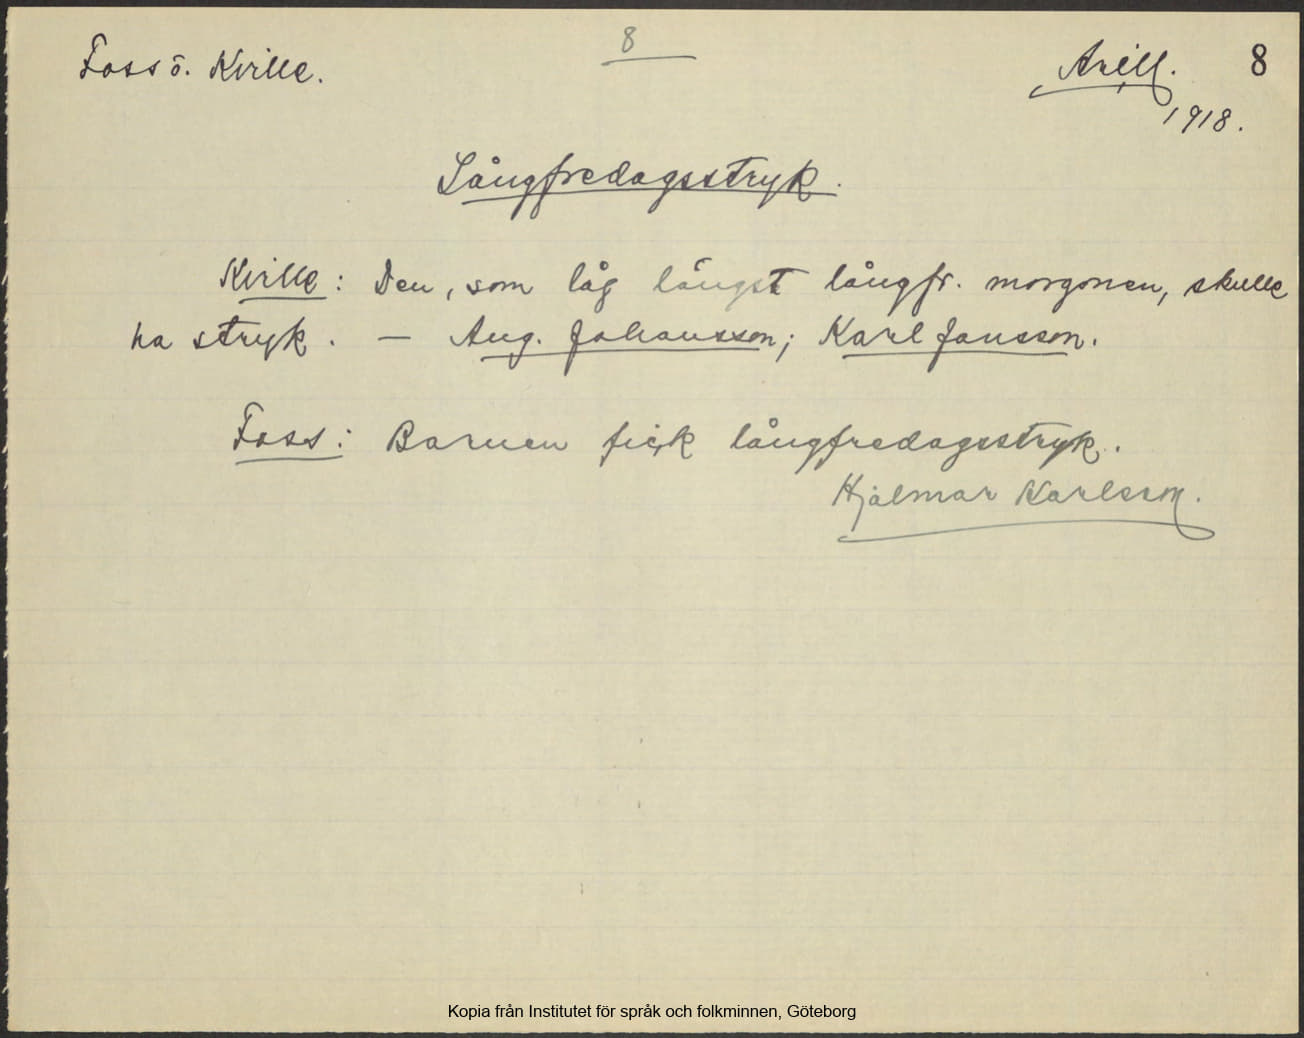 Foss ö. Kville.
8
Arill.
8
1918.
Långfredagsstryk.
Kville: Den, som låg längst långfr. morgonen, skulle
ha stryk. — Aug. Johansson; Karl Jansson.
Foss: Barnen fick långfredagsstryk.
Hjalmar Karlsson.
Kopia från Institutet för språk och folkminnen, Göteborg